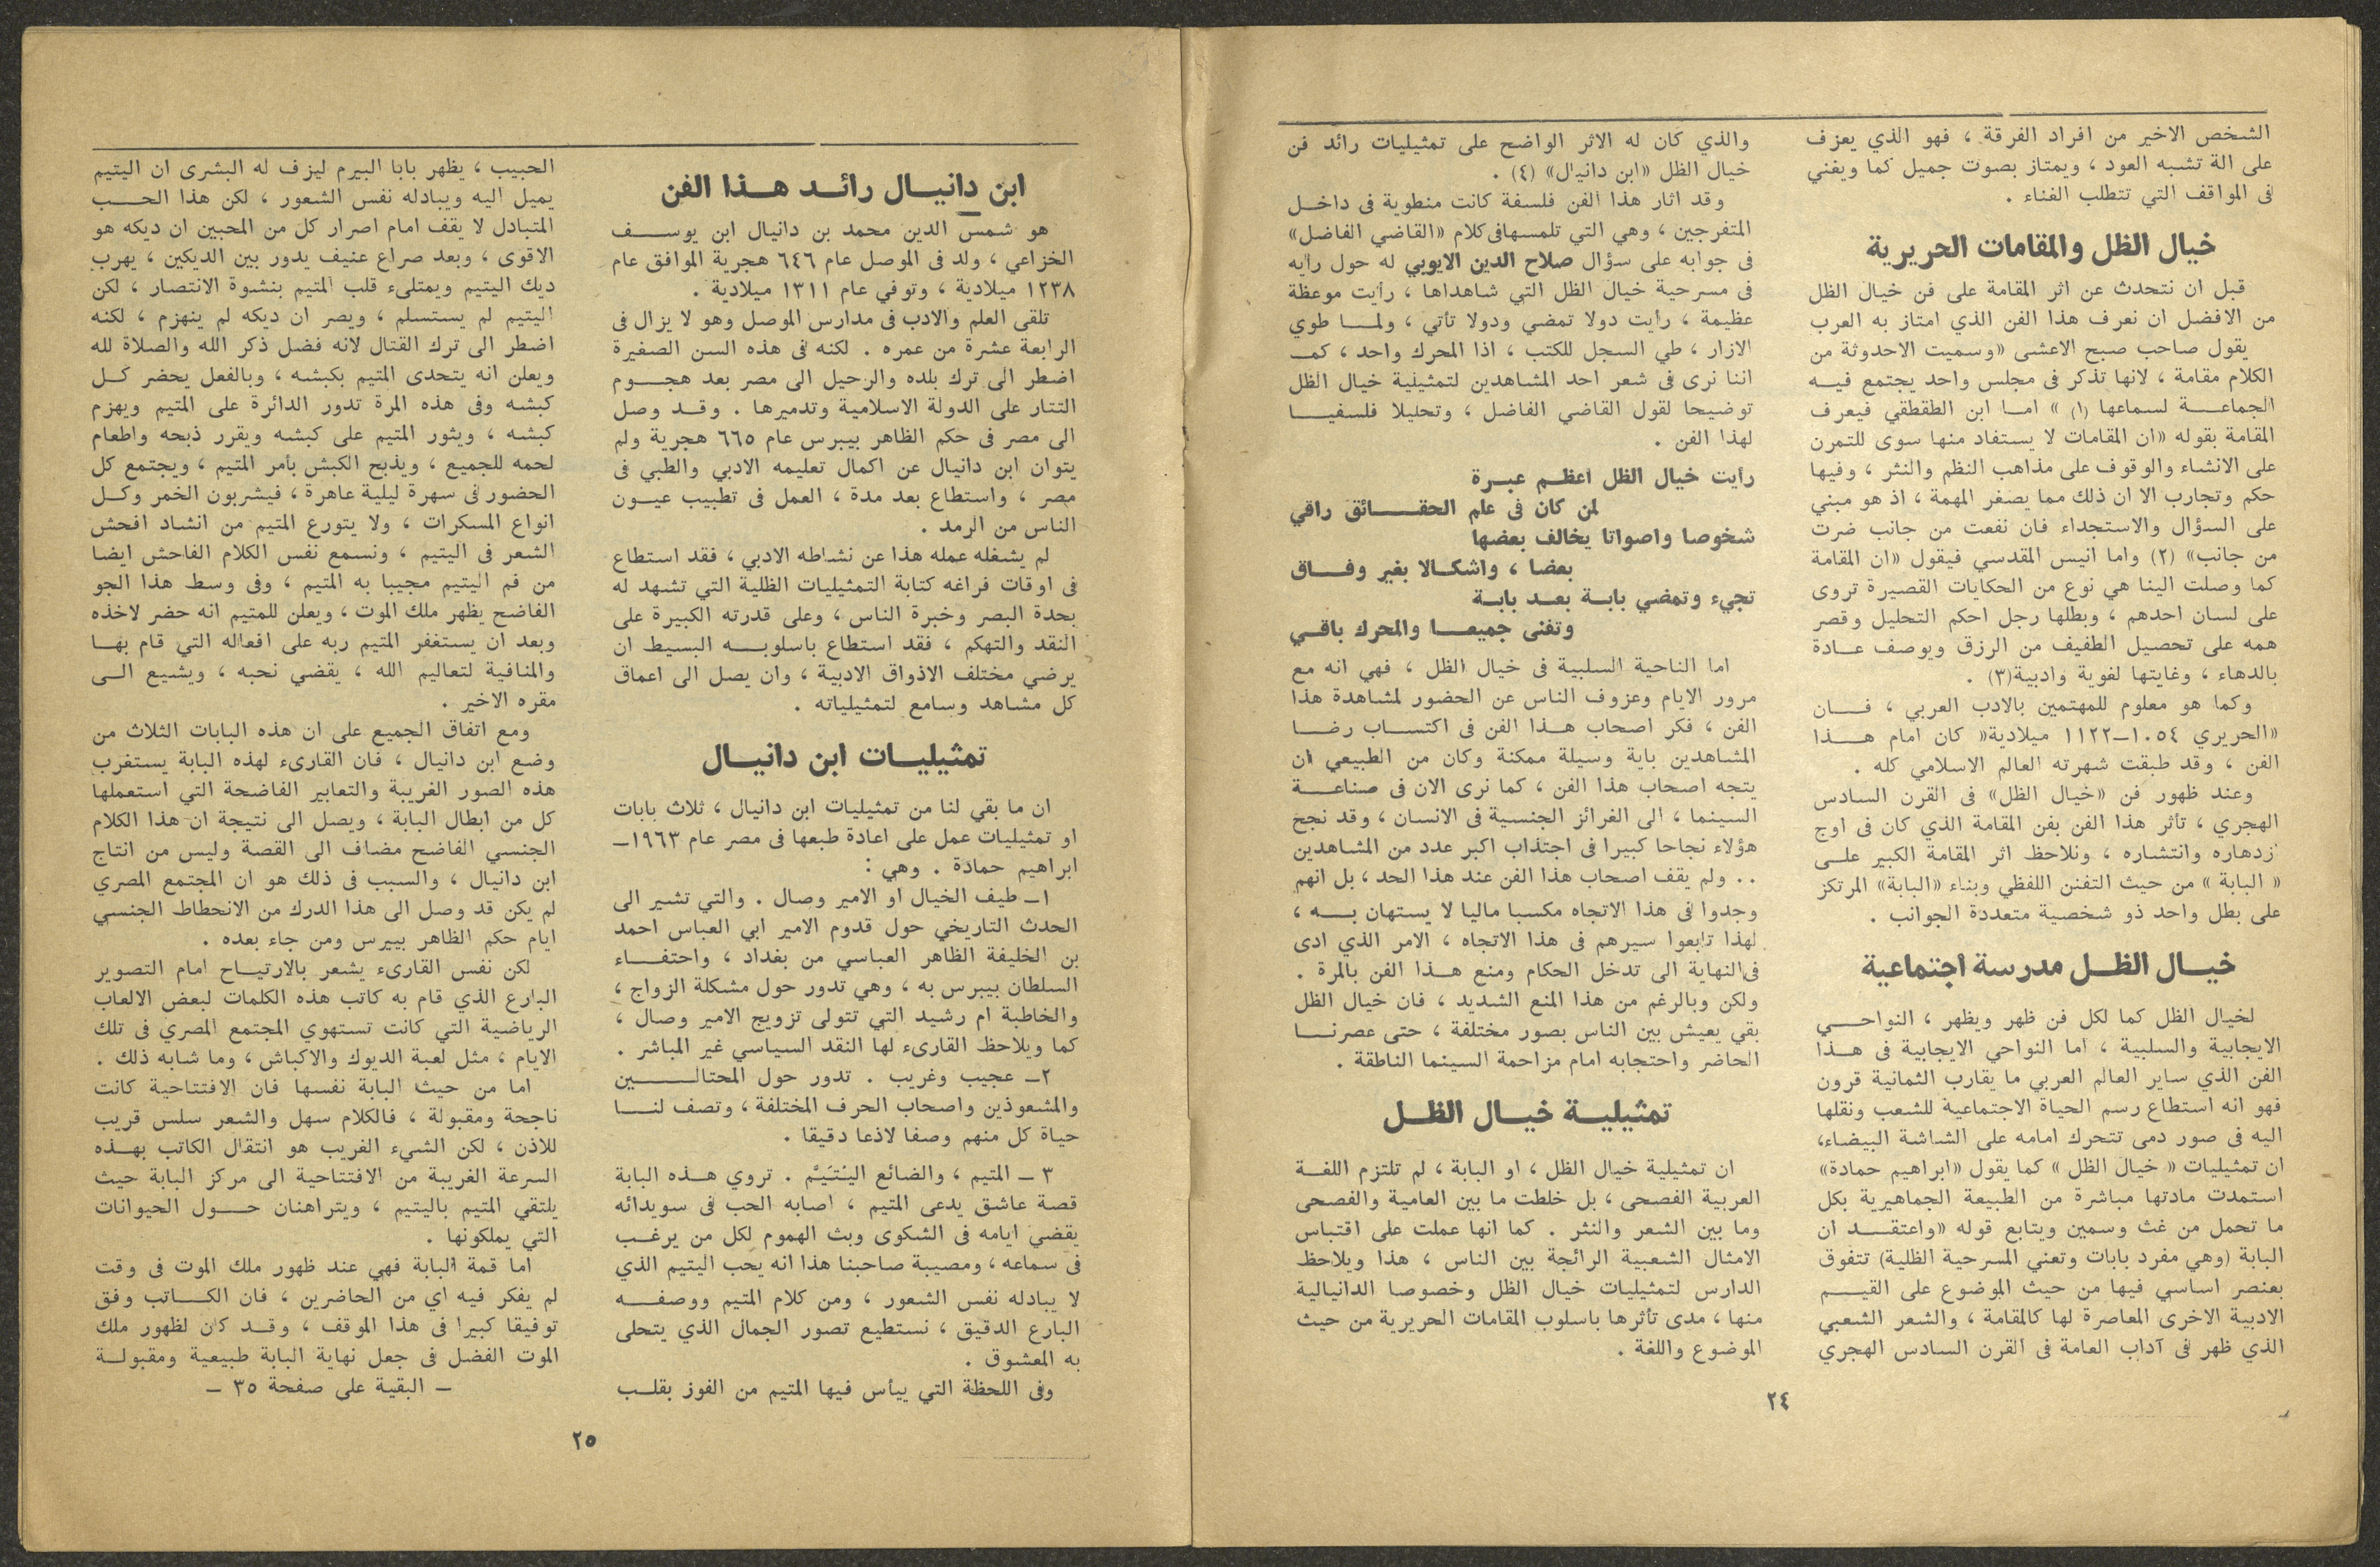 الشخص الاخير من افراد الفرقة ، فهو الذي يعزف
على الة تشبه العود ، ويمتاز بصوت جميل كما ويغني
فى المواقف التي تتطلب الغناء .
خيال الظل والمقامات الحريرية
قبل ان نتحدث عن اثر المقامة على فن خيال الظل
من الافضل ان نعرف هذا الفن الذي امتاز به العرب
يقول صاحب صبح الاعشى «وسميت الاحدوثة من
الكلام مقامة ، لانها تذكر فى مجلس واحد يجتمع فيه
الجماعة لسماعها (١) » اما ابن الطقطقي فيعرف
المقامة بقوله «ان المقامات لا يستفاد منها سوى للتمرن
على الانشاء والوقوف على مذاهب النظم والنثر ، وفيها
حكم وتجارب الا ان ذلك مما يصغر المهمة ، اذ هو مبني
على السؤال والاستجداء فان نفعت من جانب ضرت
من جانب» (٢) واما انيس المقدسي فيقول «ان المقامة
كما وصلت الينا هي نوع من الحكايات القصيرة تروى
على لسان احدهم ، وبطلها رجل احكم التحليل وقصر
همه على تحصيل الطفيف من الرزق ويوصف عادة
بالدهاء ، وغايتها لغوية وادبية(٣) .
وكما هو معلوم للمهتمين بالادب العربي ، فان
«الحريري ١٠٥٤–١١٢٢ ميلادية» كان امام هذا
الفن ، وقد طبقت شهرته العالم الاسلامي كله .
وعند ظهور فن «خيال الظل» فى القرن السادس
الهجري ، تأثر هذا الفن بفن المقامة الذي كان فى اوج
ازدهاره وانتشاره ، ونلاحظ اثر المقامة الكبير على
« البابة » من حيث التفنن اللفظي وبناء «البابة» المرتكز
على بطل واحد ذو شخصية متعددة الجوانب .
خيال الظل مدرسة اجتماعية
لخيال الظل كما لكل فن ظهر ويظهر ، النواحي
الايجابية والسلبية ، اما النواحي الايجابية فى هذا
الفن الذي ساير العالم العربي ما يقارب الثمانية قرون
فهو انه استطاع رسم الحياة الاجتماعية للشعب ونقلها
اليه فى صور دمى تتحرك امامه على الشاشة البيضاء،
ان تمثيليات « خيال الظل » كما يقول «ابراهيم حمادة»
استمدت مادتها مباشرة من الطبيعة الجماهيرية بكل
ما تحمل من غث وسمين ويتابع قوله «واعتقد ان
البابة (وهي مفرد بابات وتعني المسرحية الظلية) تتفوق
بعنصر اساسي فيها من حيث الموضوع على القيم
الادبية الاخرى المعاصرة لها كالمقامة ، والشعر الشعبي
الذي ظهر فى آداب العامة فى القرن السادس الهجري
والذي كان له الاثر الواضح على تمثيليات رائد فن
خيال الظل «ابن دانيال» (٤) .
وقد اثار هذا الفن فلسفة كانت منطوية فى داخل
المتفرجين ، وهي التي تلمسهافى كلام «القاضي الفاضل»
فى جوابه على سؤال صلاح الدين الايوبي له حول رأيه
فى مسرحية خيال الظل التي شاهداها ، رأيت موعظة
عظيمة ، رأيت دولا تمضي ودولا تأتي ، ولما طوي
الازار ، طي السجل للكتب ، اذا المحرك واحد ، كمـ
اننا نرى فى شعر احد المشاهدين لتمثيلية خيال الظل
توضيحا لقول القاضي الفاضل ، وتحليلا فلسفيا
لهذا الفن .
رأيت خيال الظل اعظم عبرة
لمن كان فى علم الحقائق راقي
شخوصا واصواتا يخالف بعضها
بعضا ، واشكالا بغير وفاق
تجيء وتمضي بابة بعد بابة
وتفنى جميعا والمحرك باقي
اما الناحية السلبية فى خيال الظل ، فهي انه مع
مرور الايام وعزوف الناس عن الحضور لمشاهدة هذا
الفن ، فكر اصحاب هذا الفن فى اكتساب رضا
المشاهدين باية وسيلة ممكنة وكان من الطبيعي ان
يتجه اصحاب هذا الفن ، كما نرى الان فى صناعة
السينما ، الى الغرائز الجنسية فى الانسان ، وقد نجح
هؤلاء نجاحا كبيرا فى اجتذاب اكبر عدد من المشاهدين
.. ولم يقف اصحاب هذا الفن عند هذا الحد ، بل انهم
وجدوا فى هذا الاتجاه مكسبا ماليا لا يستهان به ،
لهذا تابعوا سيرهم فى هذا الاتجاه ، الامر الذي ادى
فى النهاية الى تدخل الحكام ومنع هذا الفن بالمرة .
ولكن وبالرغم من هذا المنع الشديد ، فان خيال الظل
بقي يعيش بين الناس بصور مختلفة ، حتى عصرنا
الحاضر واحتجابه امام مزاحمة السينما الناطقة .
تمثيلية خيال الظل
ان تمثيلية خيال الظل ، او البابة ، لم تلتزم اللغة
العربية الفصحى ، بل خلطت ما بين العامية والفصحى
وما بين الشعر والنثر . كما انها عملت على اقتباس
الامثال الشعبية الرائجة بين الناس ، هذا ويلاحظ
الدارس لتمثيليات خيال الظل وخصوصا الدانيالية
منها ، مدى تأثرها باسلوب المقامات الحريرية من حيث
الموضوع واللغة .
٢٤
ابن دانيال رائد هذا الفن
هو شمس الدين محمد بن دانيال ابن يوسف
الخزاعي ، ولد فى الموصل عام ٦٤٦ هجرية الموافق عام
١٢٣٨ ميلادية ، وتوفي عام ١٣١١ ميلادية .
تلقى العلم والادب فى مدارس الموصل وهو لا يزال فى
الرابعة عشرة من عمره . لكنه فى هذه السن الصغيرة
اضطر الى ترك بلده والرحيل الى مصر بعد هجوم
التتار على الدولة الاسلامية وتدميرها . وقد وصل
الى مصر فى حكم الظاهر بيبرس عام ٦٦٥ هجرية ولم
يتوان ابن دانيال عن اكمال تعليمه الادبي والطبي فى
مصر ، واستطاع بعد مدة ، العمل فى تطبيب عيون
الناس من الرمد .
لم يشغله عمله هذا عن نشاطه الادبي ، فقد استطاع
فى اوقات فراغه كتابة التمثيليات الظلية التي تشهد له
بحدة البصر وخبرة الناس ، وعلى قدرته الكبيرة على
النقد والتهكم ، فقد استطاع باسلوبه البسيط ان
يرضي مختلف الاذواق الادبية ، وان يصل الى اعماق
كل مشاهد وسامع لتمثيلياته .
تمثيليات ابن دانيال
ان ما بقي لنا من تمثيليات ابن دانيال ، ثلاث بابات
او تمثيليات عمل على اعادة طبعها فى مصر عام ١٩٦٣–
ابراهيم حمادة . وهي :
١– طيف الخيال او الامير وصال . والتي تشير الى
الحدث التاريخي حول قدوم الامير ابي العباس احمد
بن الخليفة الظاهر العباسي من بغداد ، واحتفاء
السلطان بيبرس به ، وهي تدور حول مشكلة الزواج ،
والخاطبة ام رشيد التي تتولى تزويج الامير وصال ،
كما ويلاحظ القارىء لها النقد السياسي غير المباشر .
٢– عجيب وغريب . تدور حول المحتالين
والمشعوذين واصحاب الحرف المختلفة ، وتصف لنا
حياة كل منهم وصفا لاذعا دقيقا .
٣ – المتيم ، والضائع اليتيم . تروي هذه البابة
قصة عاشق يدعى المتيم ، اصابه الحب فى سويدائه
يقضي ايامه فى الشكوى وبث الهموم لكل من يرغب
فى سماعه ، ومصيبة صاحبنا هذا انه يحب اليتيم الذي
لا يبادله نفس الشعور ، ومن كلام المتيم ووصفه
البارع الدقيق ، نستطيع تصور الجمال الذي يتحلى
به المعشوق .
وفى اللحظة التي ييأس فيها المتيم من الفوز بقلب
الحبيب ، يظهر بابا البيرم ليزف له البشرى ان اليتيم
يميل اليه ويبادله نفس الشعور ، لكن هذا الحب
المتبادل لا يقف امام اصرار كل من المحبين ان ديكه هو
الاقوى ، وبعد صراع عنيف يدور بين الديكين ، يهرب
ديك اليتيم ويمتلىء قلب المتيم بنشوة الانتصار ، لكن
اليتيم لم يستسلم ، ويصر ان ديكه لم ينهزم ، لكنه
اضطر الى ترك القتال لانه فضل ذكر الله والصلاة لله
ويعلن انه يتحدى المتيم بكبشه ، وبالفعل يحضر كل
كبشه وفى هذه المرة تدور الدائرة على المتيم ويهزم
كبشه ، ويثور المتيم على كبشه ويقرر ذبحه واطعام
لحمه للجميع ، ويذبح الكبش بأمر المتيم ، ويجتمع كل
الحضور فى سهرة ليلية عاهرة ، فيشربون الخمر وكل
انواع المسكرات ، ولا يتورع المتيم من انشاد افحش
الشعر فى اليتيم ، ونسمع نفس الكلام الفاحش ايضا
من فم اليتيم مجيبا به المتيم ، وفى وسط هذا الجو
الفاضح يظهر ملك الموت ، ويعلن للمتيم انه حضر لاخذه
وبعد ان يستغفر المتيم ربه على افعاله التي قام بها
والمنافية لتعاليم الله ، يقضي نحبه ، ويشيع الى
مقره الاخير .
ومع اتفاق الجميع على ان هذه البابات الثلاث من
وضع ابن دانيال ، فان القارىء لهذه البابة يستغرب
هذه الصور الغريبة والتعابير الفاضحة التي استعملها
كل من ابطال البابة ، ويصل الى نتيجة ان هذا الكلام
الجنسي الفاضح مضاف الى القصة وليس من انتاج
ابن دانيال ، والسبب فى ذلك هو ان المجتمع المصري
لم يكن قد وصل الى هذا الدرك من الانحطاط الجنسي
ايام حكم الظاهر بيبرس ومن جاء بعده .
لكن نفس القارىء يشعر بالارتياح امام التصوير
البارع الذي قام به كاتب هذه الكلمات لبعض الالعاب
الرياضية التي كانت تستهوي المجتمع المصري فى تلك
الايام ، مثل لعبة الديوك والاكباش ، وما شابه ذلك .
اما من حيث البابة نفسها فان الافتتاحية كانت
ناجحة ومقبولة ، فالكلام سهل والشعر سلس قريب
للاذن ، لكن الشيء الغريب هو انتقال الكاتب بهذه
السرعة الغريبة من الافتتاحية الى مركز البابة حيث
يلتقي المتيم باليتيم ، ويتراهنان حول الحيوانات
التي يملكونها .
اما قمة البابة فهي عند ظهور ملك الموت فى وقت
لم يفكر فيه اي من الحاضرين ، فان الكاتب وفق
توفيقا كبيرا فى هذا الموقف ، وقد كان لظهور ملك
الموت الفضل فى جعل نهاية البابة طبيعية ومقبولة
– البقية على صفحة ٣٥ –
٢٥